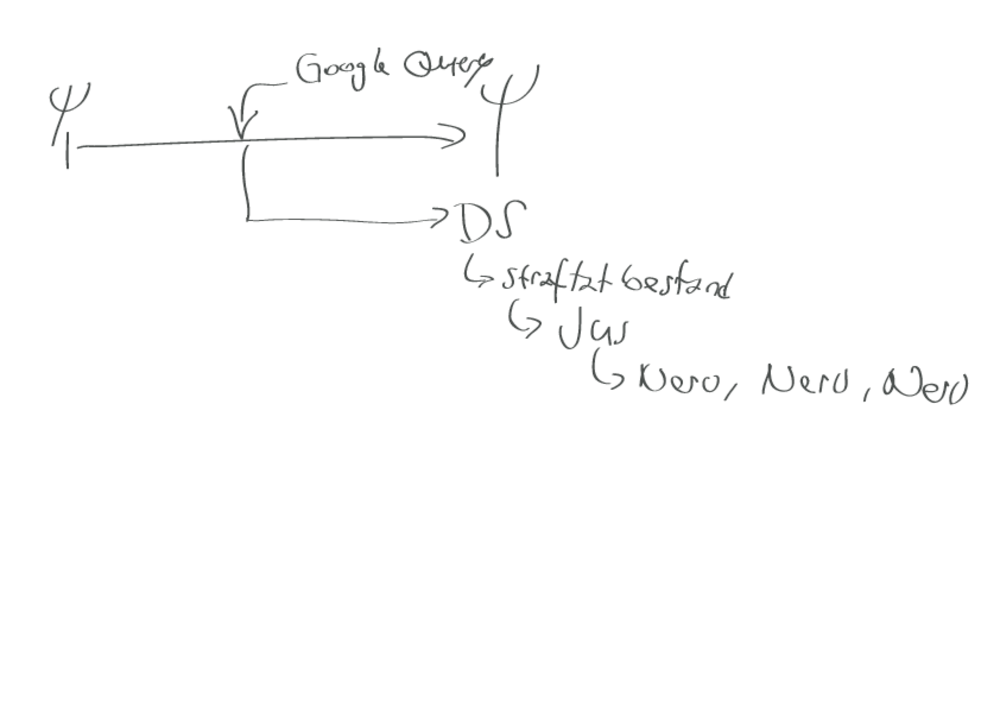 Google Query
Ψ Ψ
DS
straftatbestand
Jus
Nerd, Nerd, Nerd